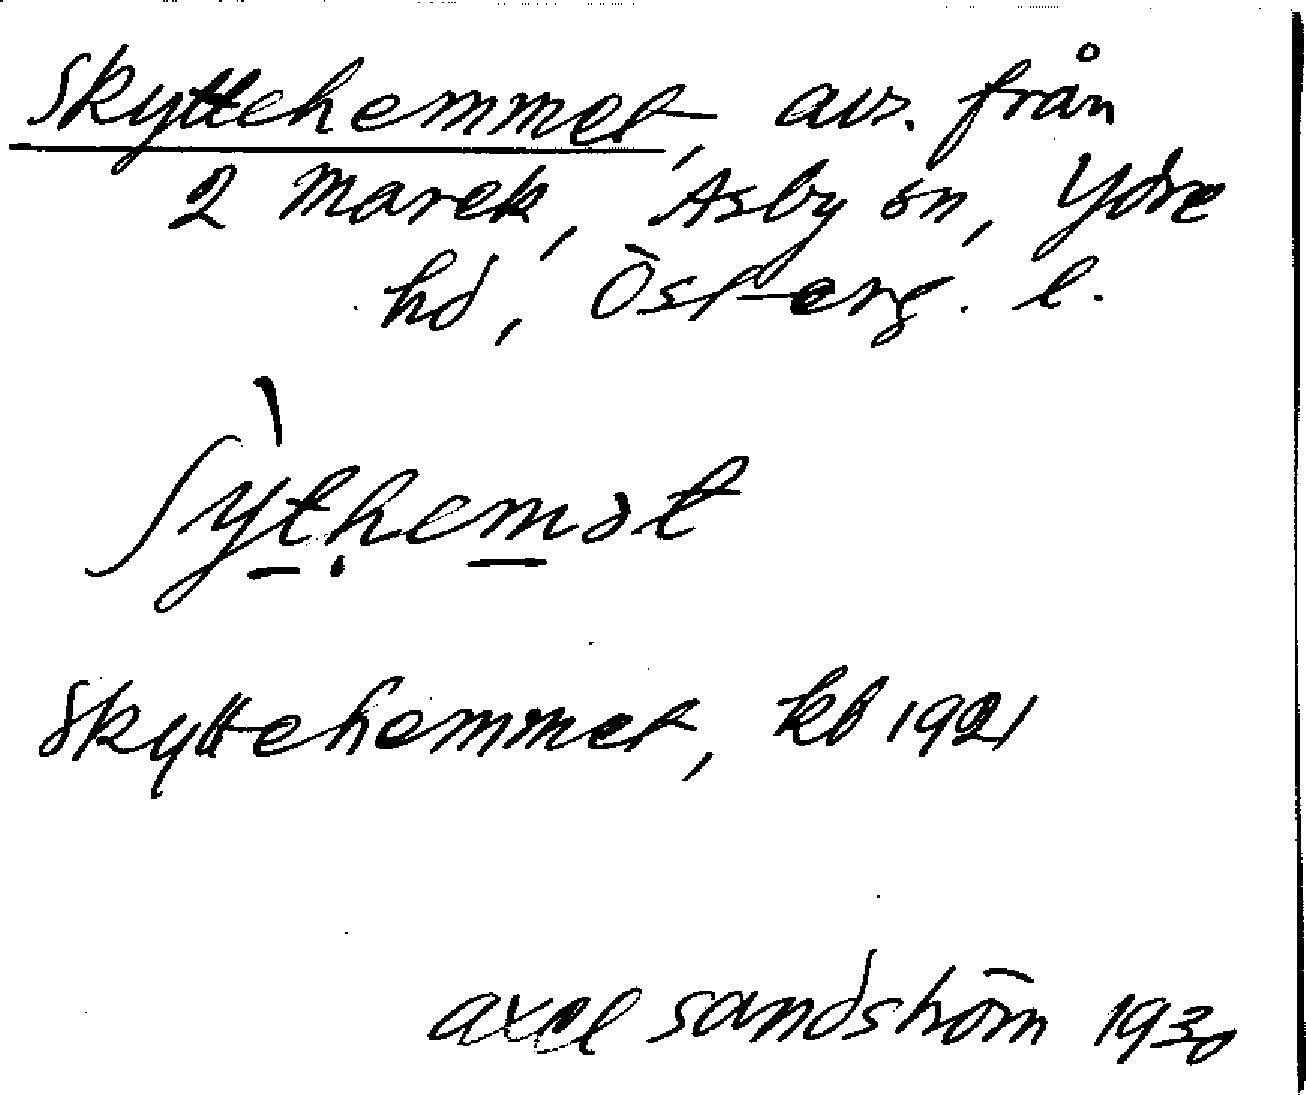 Skyttehemmet, avs. från
2 Marek, Asby sn, Ydre
hd, Österg. l.
Skyttehemmet, kb 1921
Axel Sandström 1930